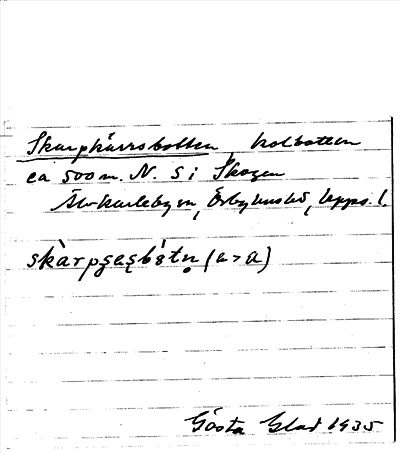 Skarpkärrsbotten, kolbotten
ca 500 m. N. S i Skogen
Älvkarleby sn, Örbyhus hd, Upps. l.
skàrpʂaʂbótn̥ (a > a)
Gösta Glad 1935